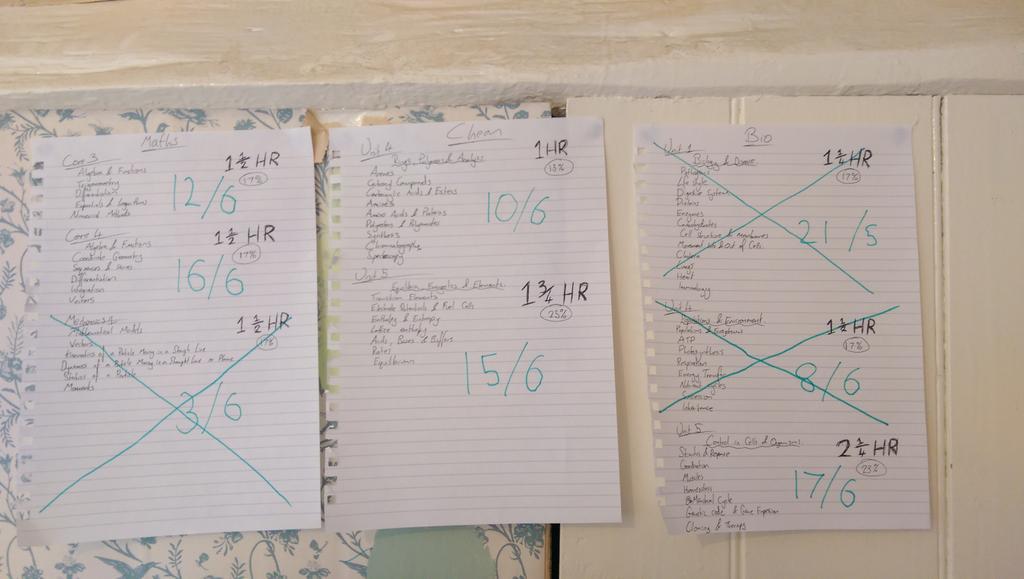 Maths
Core 3
1 ½ HR
17%
Algebra & Functions
Trigonometry
Differentiation
Exponentials & Logarithms
Numerical Methods
12/6
Core 4
1 ½ HR
17%
Algebra & Functions
Coordinate Geometry
Sequences & Series
Differentiation
Integration
Vectors
16/6
1 ½ HR
17%
Mathematical Models
Vectors
Kinematics of a Particle Moving in a Straight Line
Dynamics of a Particle Moving in a Straight Line or Plane
Statics of a Particle
Moments
3/6
Chem
Unit 4
1 HR
Arenes
Carbonyl Compounds
Carboxylic Acids & Esters
Amines
Amino Acids & Proteins
Polyesters & Polyamides
Synthesis
Chromatography
Spectroscopy
10/6
Unit 5
Equilibria, Energetics & Elements
1 ¾ HR
25%
Transition Elements
Electrode Potentials & Fuel Cells
Enthalpy & Entropy
Lattice enthalpy
Acids, Bases & Buffers
Rates
Equilibrium
15/6
Bio
Unit 1
Biology & Disease
17%
Pathogens
Life style
Digestive System
Proteins
Enzymes
Carbohydrates
Cell Structure & Membranes
Movement In & Out of Cells
Cholera
Lungs
Heart
Immunology
21/5
Unit 4
Populations & Environment
17%
Populations & Ecosystems
ATP
Photosynthesis
Respiration
Energy Transfer
Nutrient Cycles
Succession
Inheritence
8/6
Unit 5
Control in Cells & Organisms
2 ¼ HR
23%
Stimulus & Response
Coordination
Muscles
Homeostasis
Menstrual Cycle
Genetic code & Gene Expression
Cloning & Therapy
17/6